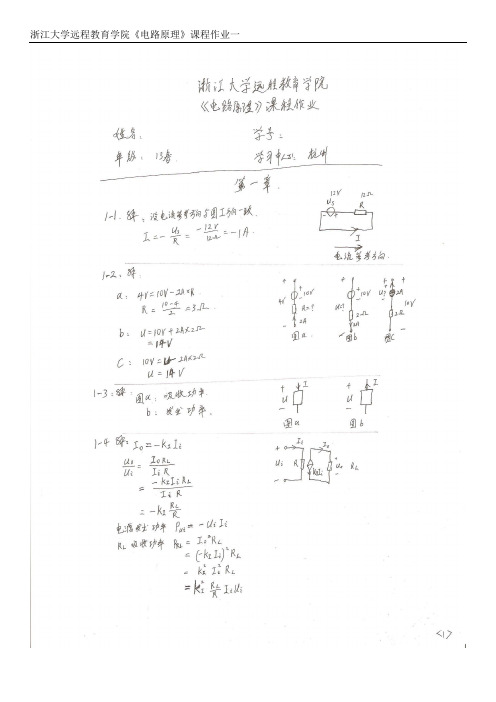 浙江大学远程教育学院《电路原理》课程作业一
浙江大学远程教育学院
《电路原理》课程作业
姓名： 学号：
年级：13春 学习中心： 杭州
第一章
1-1. 解：设电流参考方向与图I方向一致.
I = - U₅/R = -12V/12Ω = -1A.
12V 12Ω
Us R
- +
I
电流参考方向
1-2. 解.
a: 4V=10V-2A×R
R = 10-4/2 = 3Ω
b: U=10V+2A×2Ω
=14V
C: 10V=U-2A×2Ω
U = 14V
4V 10V R=? 2A 图a
U=? 10V 2Ω 2A 图b
U? 2A 2Ω 10V 图C
1-3: 解: 图a: 吸收功率.
b: 发出功率.
+ U - I 图a
+ U - I 图b
1-4 解: I₀ = -k₂Ii
u₀/Ui = I₀RL/IiR
= -k₂IiRL/IiR
= -k₂ RL/R
电源发出功率 Pui = -UiIi
RL吸收功率 PRL = I₀²RL
= (-k₂Ii)²RL
= k₂²Ii²RL
= k₂² RL/R IiUi
+ Ii I₀
Ui R k₂Ii U₀ RL
-
<1>
1